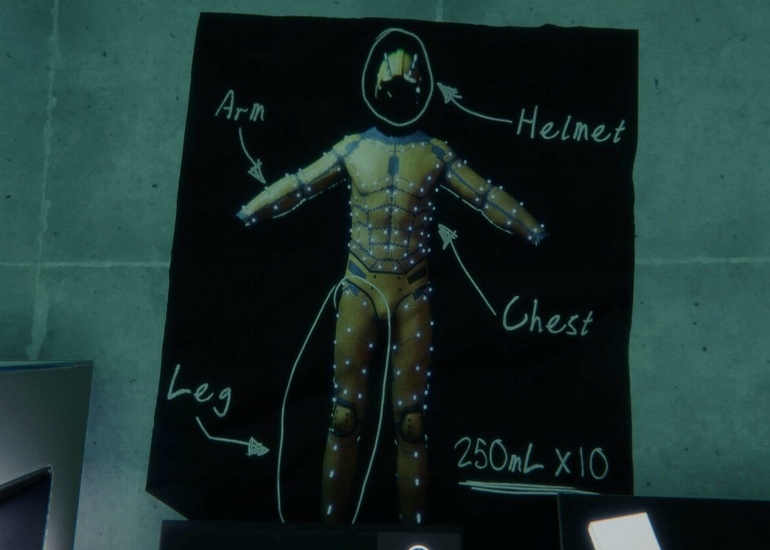 Arm
Helmet
Chest
Leg
250mL X10